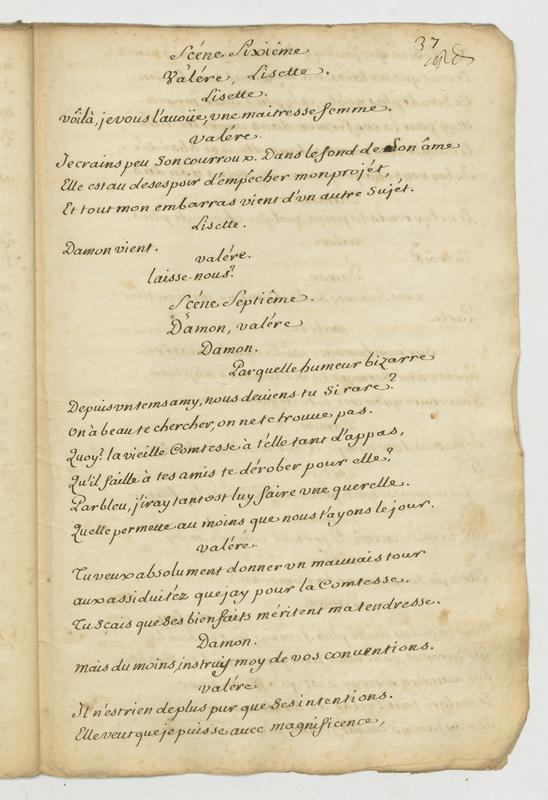 37
Scéne Sixiême
Valére, Lisette.
Lisette.
voila, je vous l'auoüe, vne maitresse femme.
valére.
Je crains peu Son courroux. Dans le fond de Son âme
Elle est au desespoir d'empécher mon projét,
Et tout mon embarras vient d'vn autre Sujét.
Lisette.
Damon vient.
valére.
laisse-nous?
Scéne Septiême.
Damon, valére
Damon.
Par quelle humeur bizarre
Depuis vn tems amy, nous deuiens tu Si rare?
On à beau te chercher, on ne te trouue pas.
Quoy? la vieille Comtesse à t'elle tant d'appas,
Qu'il faille à tes amis te dérober pour elle?
Parbleu, j'iray tantost luy faire vne querelle.
Quelle permette au moins que nous t'ayons le jour.
valére.
Tu veux absolument donner vn mauuais tour
aux assiduitéz que jay pour la Comtesse.
Tu Sçais que Ses bienfaits méritent ma tendresse.
Damon.
mais du moins, instruis moy de vos conuentions.
valére
Il n'est rien de plus pur que Ses intentions.
Elle veut que je puisse auec magnificence,